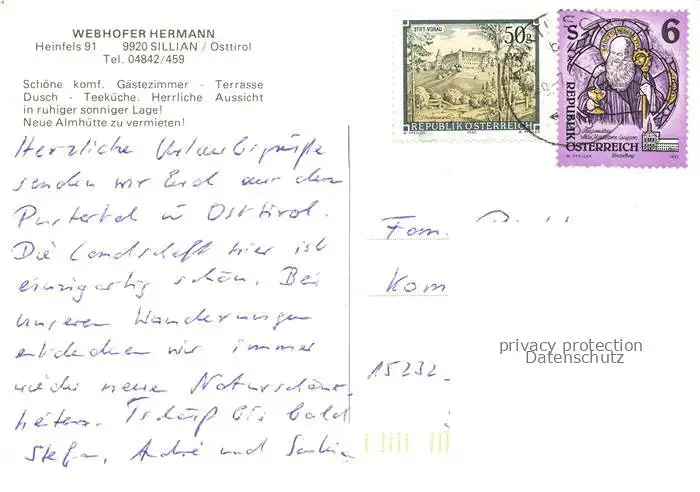 WEBHOFER HERMANN
Heinfels 91 9920 SILLIAN / Osttirol
Tel. 04842/459
Schöne komf. Gästezimmer - Terrasse
Dusch - Teeküche. Herrliche Aussicht
in ruhiger sonniger Lage!
Neue Almhütte zu vermieten!
STIFT VORAU
50g
REPUBLIK ÖSTERREICH
S 6
REPUBLIK
ÖSTERREICH
Herzliche Urlaubsgrüße
senden wir Euch aus dem
Pustertal in Osttirol.
Die Landschaft hier ist
einzigartig schön. Bei
unseren Wanderungen
entdecken wir immer
wieder neue Naturschön-
heiten. Tschüß bis bald
Stefan, André und
Fam.
Kom
15232
privacy protection
Datenschutz